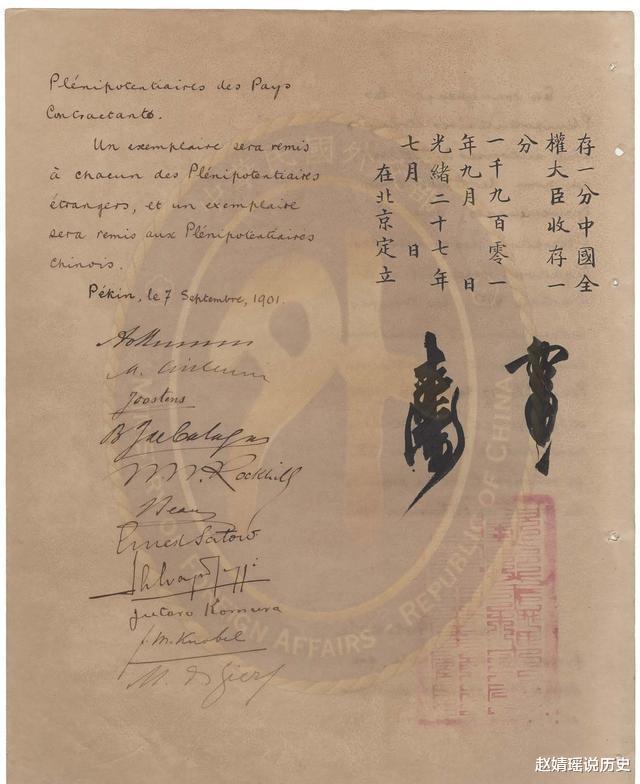 Plénipotentiaires des Pays
Contractants.
Un exemplaire sera remis
à chacun des Plénipotentiaires
étrangers, et un exemplaire
sera remis aux Plénipotentiaires
chinois.
Pékin, le 7 Septembre, 1901.
Joostens
Rockhill
Beau
Ernest Satow
Jutaro Komura
F. M. Knobel
M. de Giers
存一分中國全
權大臣收存一
分
一千九百零一
年九月 日
光緒二十七年
七月 日
在北京定立
FOREIGN AFFAIRS - REPUBLIC OF CHINA
赵婧瑶说历史